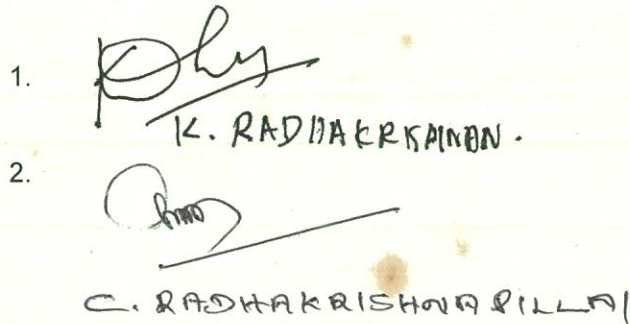 1.
K. RADHAKRKAINAN.
2.
C. RADHAKRISHNA PILLAI